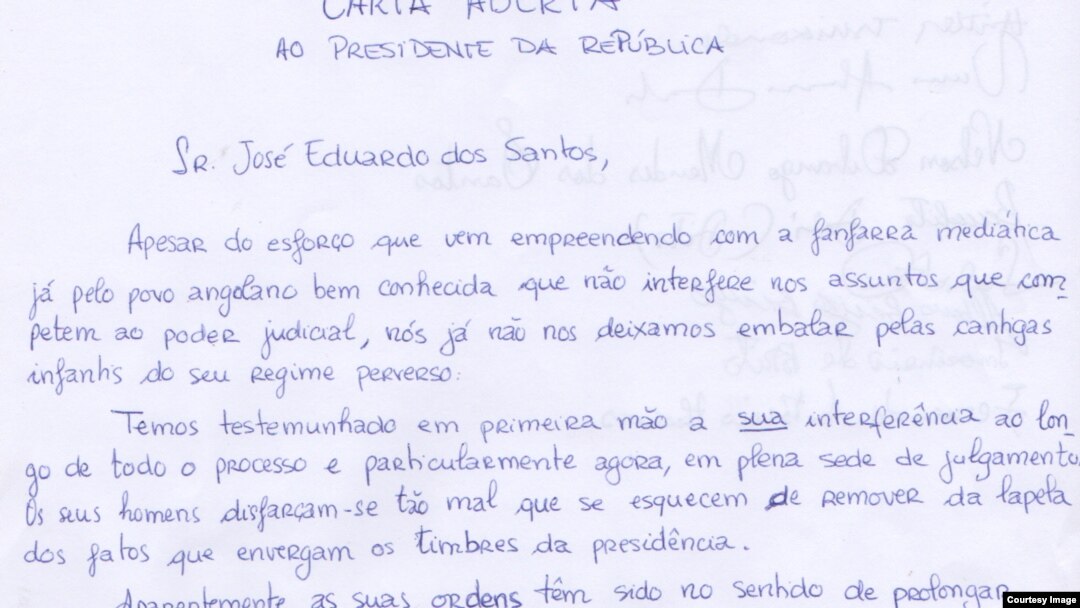 CARTA ABERTA
AO PRESIDENTE DA REPÚBLICA
SR. José Eduardo dos Santos,
Apesar do esforço que vem empreendendo com a fanfarra mediática
já pelo povo angolano bem conhecida que não interfere nos assuntos que com-
petem ao poder judicial, nós já não nos deixamos embalar pelas cantigas
infantis do seu regime perverso.
Temos testemunhado em primeira mão a sua interferência ao lon-
go de todo o processo e particularmente agora, em plena sede de julgamento.
Os seus homens disfarçam-se tão mal que se esquecem de remover da lapela
dos fatos que envergam os timbres da presidência.
Aparentemente as suas ordens têm sido no sentido de prolongar
Courtesy Image